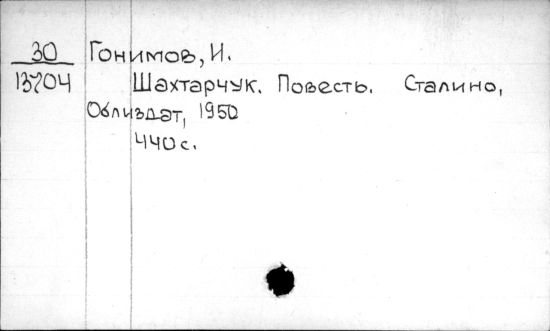 30 Гонимов, И.
13704 Шахтарчук. Повесть. Сталино,
Облиздат, 1950
440 с.